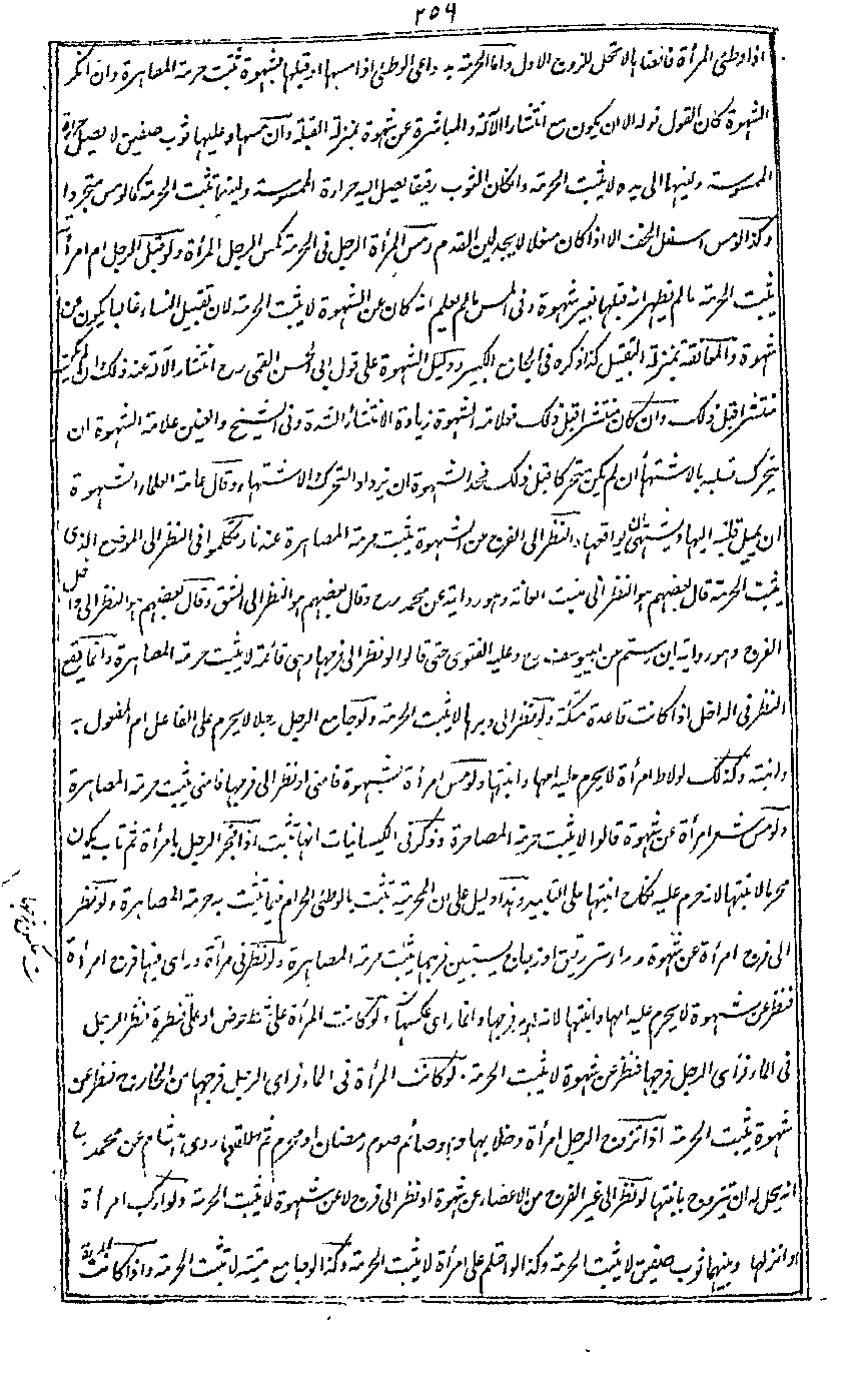 ٢٥٩
اذا وطئ المرأة فافضاها لا تحل للزوج الاول واما الحرمة بدواعى الوطئ اذا مسها او قبلها بشهوة ثبتت حرمة المصاهرة وان انكر
الشهوة كان القول قوله الا ان يكون مع انتشار الآلة والمباشرة عن شهوة بمنزلة القبلة وان مسها وعليها ثوب صفيق لا يصل حرارة
الممسوسة ولينها الى يده لا يثبت الحرمة وان كان الثوب رقيقا يصل اليه حرارة الممسوسة ولينها تثبت الحرمة كما لو مس متجردا
وكذا لو مس اسفل الخف الا اذا كان منعلا لا يجد لين القدم ومس المرأة الرجل فى الحرمة كمس الرجل المرأة ولو قبل الرجل ام امرأته
يثبت الحرمة ما لم يظهر انه قبلها بغير شهوة وفى المس ما لم يعلم انه كان عن الشهوة لا يثبت الحرمة لان تقبيل النساء غالبا يكون عن
شهوة والمعانقة بمنزلة التقبيل كذا ذكره فى الجامع الكبير ودليل الشهوة على قول ابى الحسن القمى رح انتشار الآلة عند ذلك ان لم يكن
منتشرا قبل ذلك وان كان منتشرا قبل ذلك فعلامة الشهوة زيادة الانتشار والشدة وفى الشيخ والعنين علامة الشهوة ان
يتحرك قلبه بالاشتهاء ان لم يكن متحركا قبل ذلك فحد الشهوة ان يزداد التحرك والاشتهاء وقال عامة العلماء الشهوة
ان يميل قلبه اليها ويشتهى ان يواقعها والنظر الى الفرج عن الشهوة يثبت حرمة المصاهرة عندنا وتكلموا فى النظر الى الموضع الذى
يثبت الحرمة قال بعضهم هو النظر الى منبت العانة وهو رواية عن محمد رح وقال بعضهم هو النظر الى الشق وقال بعضهم هو النظر الى داخل
الفرج وهو رواية ابن رستم عن ابى يوسف رح وعليه الفتوى حتى قالوا لو نظر الى فرجها وهى قائمة لا يثبت حرمة المصاهرة وانما يقع
النظر فى الداخل اذا كانت قاعدة متكئة ولو نظر الى دبرها لا يثبت الحرمة ولو جامع الرجل رجلا لا يحرم على الفاعل ام المفعول به
وابنته وكذلك لو لاط امرأة لا يحرم عليه امها وابنتها ولو مس امرأة بشهوة فامنى او نظر الى فرجها فامنى يثبت حرمة المصاهرة
ولو مس شعر امرأة عن شهوة قالوا لا يثبت حرمة المصاهرة وذكر فى الكيسانيات انها تثبت اذا فجر الرجل بامرأة ثم تاب يكون
محرما لابنتها لانه حرم عليه نكاح ابنتها على التابيد وهذا دليل على ان المحرمية تثبت بالوطئ الحرام فيما يثبت به حرمة المصاهرة ولو نظر
الى فرج امرأة عن شهوة وراء ستر رقيق او زجاج يستبين فرجها يثبت حرمة المصاهرة ولو نظر فى مرآة وراى فيها فرج امرأة
فنظر عن شهوة لا يحرم عليه امها وابنتها لانه لم ير فرجها وانما راى عكسها ولو كانت المرأة على شط حوض او على قنطرة نظر الرجل
فى الماء فرأى الرجل فرجها فنظر عن شهوة لا يثبت الحرمة لو كانت المرأة فى الماء فراى الرجل فرجها من الخارج فنظر عن
شهوة يثبت الحرمة اذا تزوج الرجل امرأة وخلا بها وهو صائم صوم رمضان او محرم ثم طلقها روى هشام عن محمد
انه يحل له ان يتزوج بابنتها لو نظر الى غير الفرج من الاعضاء عن شهوة او نظر الى فرج لا عن شهوة لا يثبت الحرمة ولو اركب امرأة
او انزلها وبينهما ثوب صفيق لا يثبت الحرمة وكذا لو احتلم على امرأة لا يثبت الحرمة وكذا لو جامع ميتة لا تثبت الحرمة واذا كانت